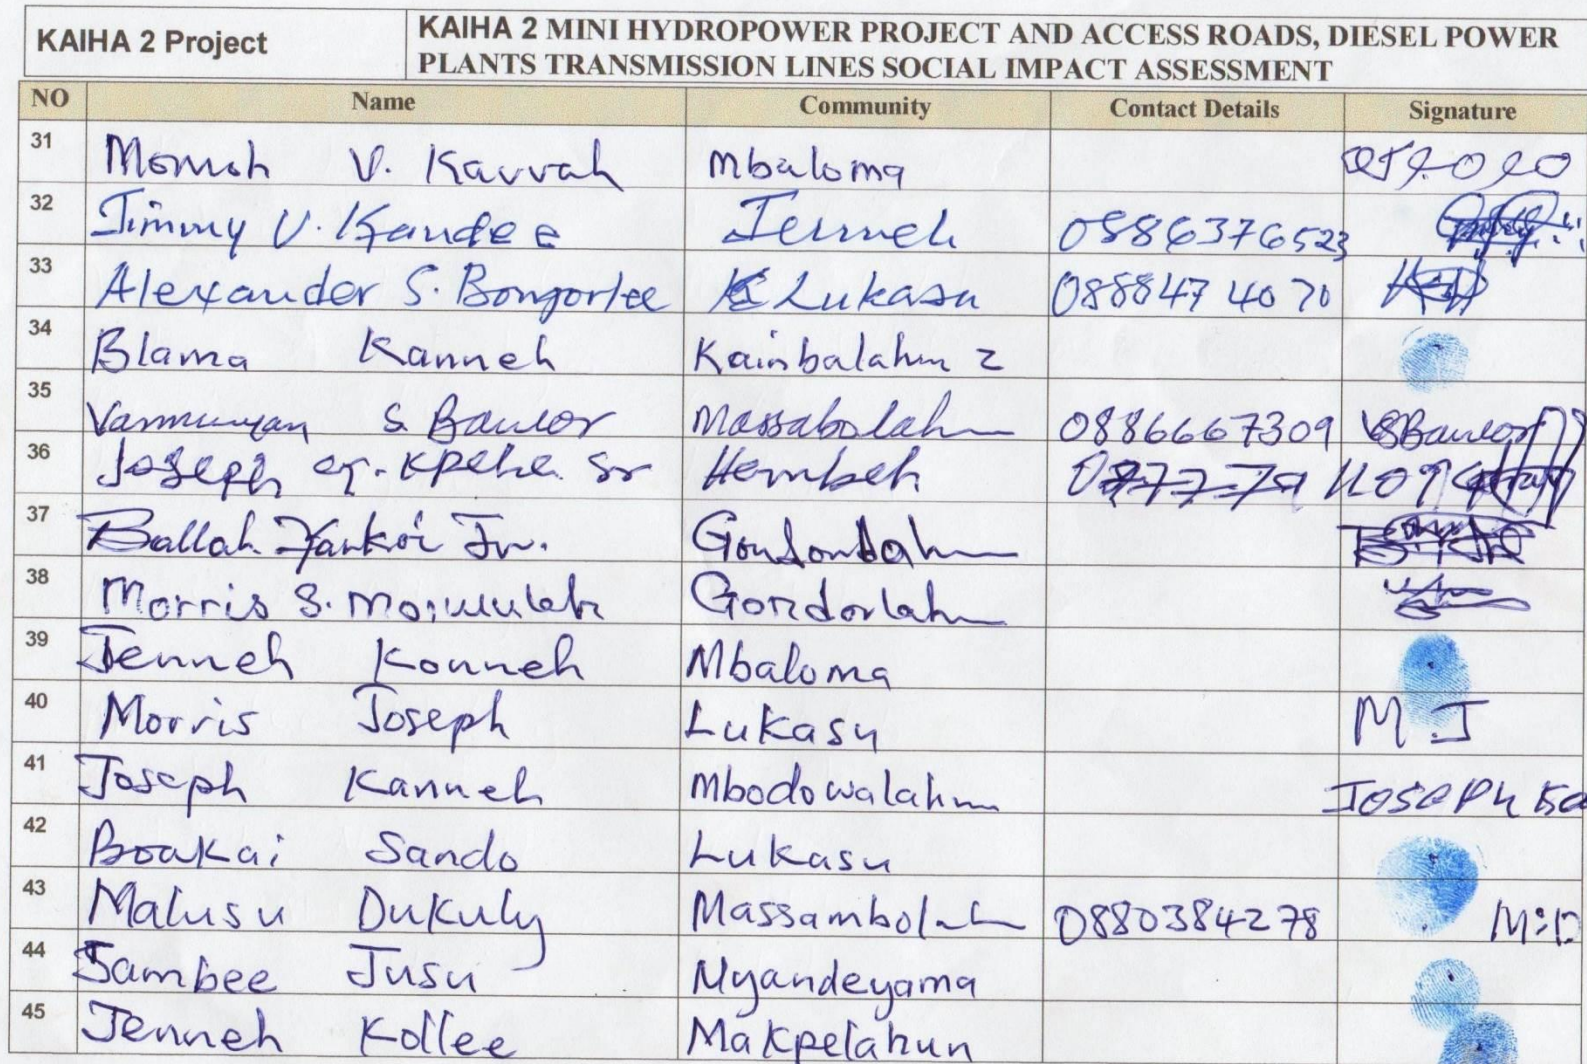 KAIHA 2 Project
KAIHA 2 MINI HYDROPOWER PROJECT AND ACCESS ROADS, DIESEL POWER
PLANTS TRANSMISSION LINES SOCIAL IMPACT ASSESSMENT
NO Name Community Contact Details Signature
31 Momoh V. Kavvah Mbaloma
32 Jimmy V. Kandee Jenneh 0886376523
33 Alexander S. Bongorlee Lukasu 0888474070
34 Blama Kanneh Kainbalahun 2
35 S. Massabolahun 0886667309
36 Joseph Kpehe Sr Hembeh
37 Ballah Yankoi Jr.
38 Morris S. Gondorlahun
39 Jenneh Konneh Mbaloma
40 Morris Joseph Lukasu M J
41 Joseph Kanneh Mbodowalahun JOSEPH Ka
42 Boakai Sando Lukasu
43 Malusu Dukuly Massambolah 0880384278 M:D
44 Sambee Jusu Nyandeyama
45 Jenneh Kollee Makpelahun